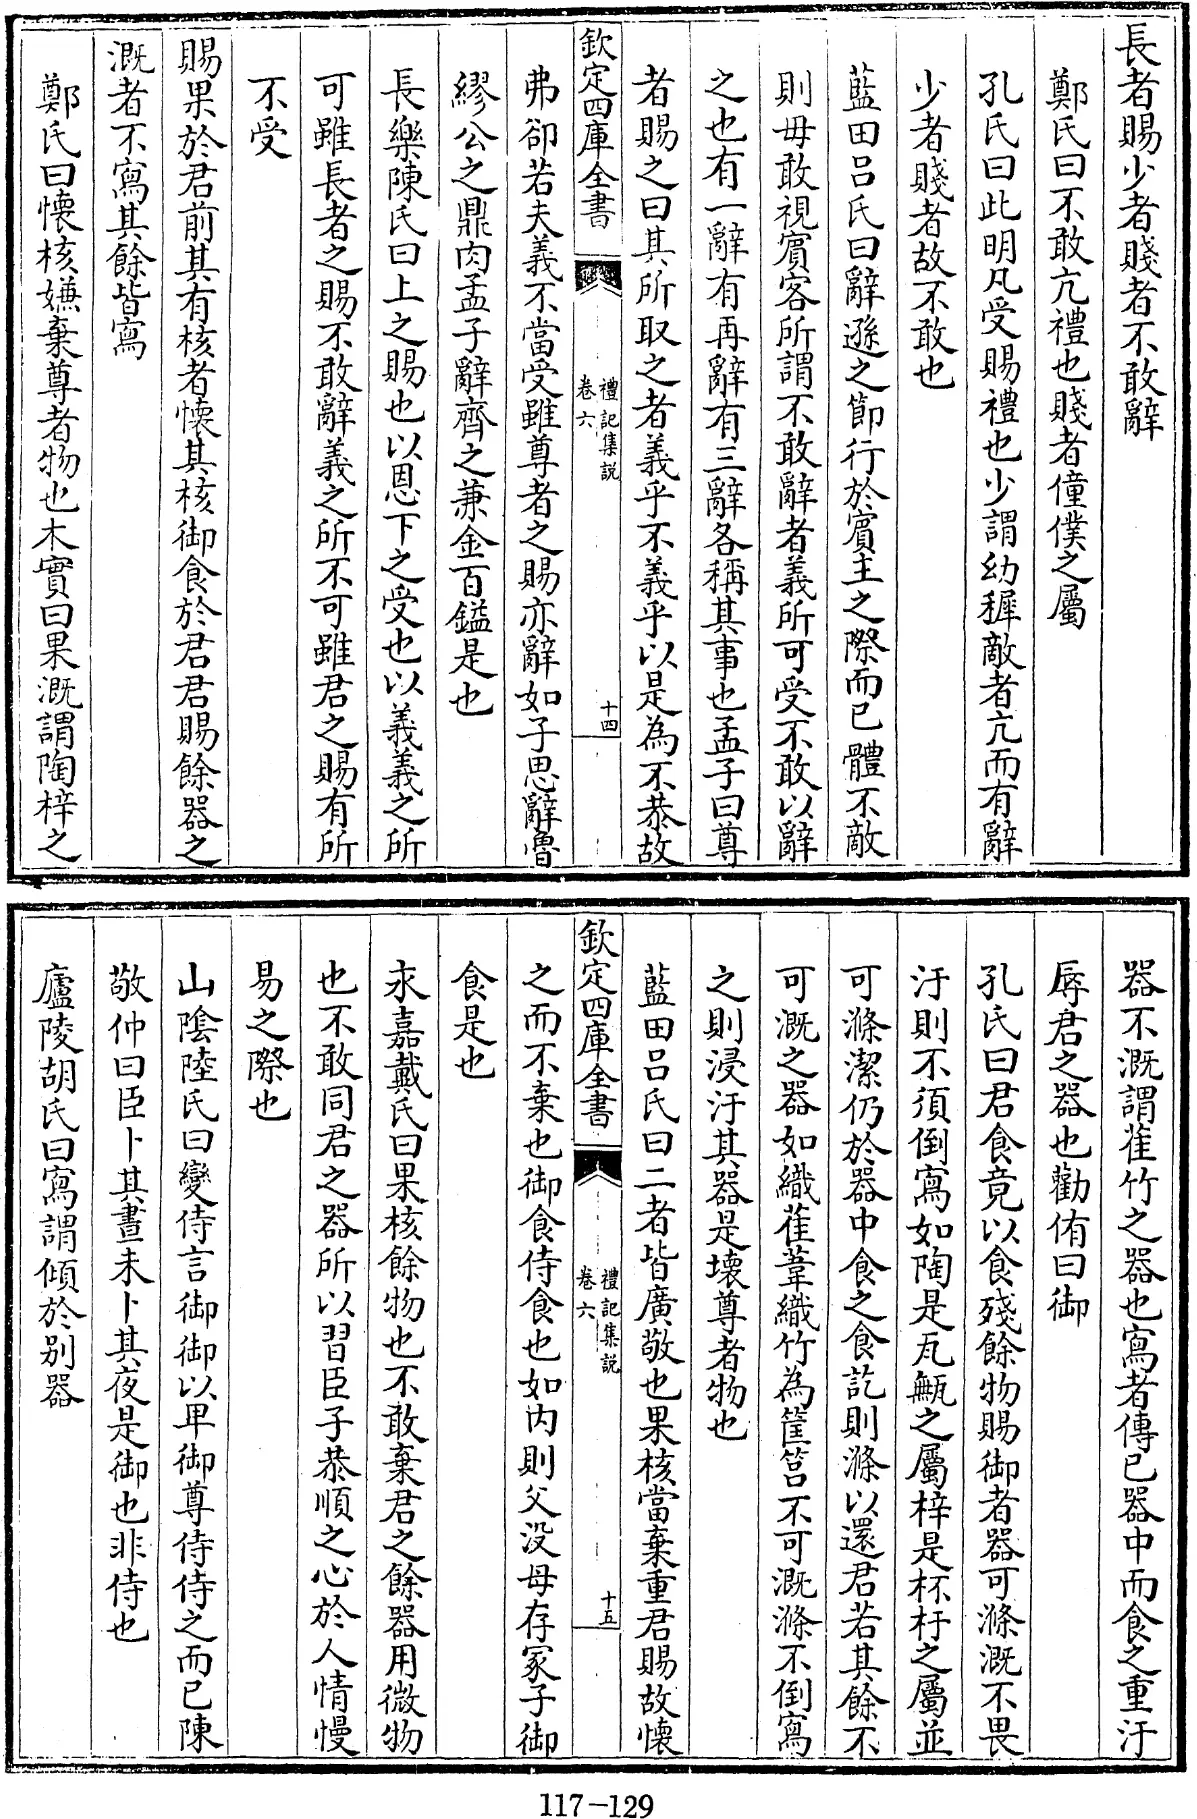 長者賜少者賤者不敢辭
鄭氏曰不敢亢禮也賤者僮僕之屬
孔氏曰此明凡受賜禮也少謂幼穉敵者亢而有辭
少者賤者故不敢也
藍田吕氏曰辭遜之節行於賓主之際而已體不敵
則毋敢視賓客所謂不敢辭者義所可受不敢以辭
之也有一辭有再辭有三辭各稱其事也孟子曰尊
者賜之曰其所取之者義乎不義乎以是為不恭故
欽定四庫全書
禮記集說
卷六
十四
弗卻若夫義不當受雖尊者之賜亦辭如子思辭魯
繆公之鼎肉孟子辭齊之兼金百鎰是也
長樂陳氏曰上之賜也以恩下之受也以義義之所
可雖長者之賜不敢辭義之所不可雖君之賜有所
不受
賜果於君前其有核者懷其核御食於君君賜餘器之
溉者不寫其餘皆寫
鄭氏曰懷核嫌棄尊者物也木實曰果溉謂陶梓之
器不溉謂萑竹之器也寫者傳已器中而食之重汙
辱君之器也勸侑曰御
孔氏曰君食竟以食殘餘物賜御者器可滌溉不畏
汙則不須倒寫如陶是瓦甒之屬梓是杯杅之屬並
可滌潔仍於器中食之食訖則滌以還君若其餘不
可溉之器如織萑葦織竹為筐筥不可溉滌不倒寫
之則浸汙其器是壊尊者物也
藍田吕氏曰二者皆廣敬也果核當棄重君賜故懷
欽定四庫全書
禮記集說
卷六
十五
之而不棄也御食侍食也如内則父没母存冢子御
食是也
永嘉戴氏曰果核餘物也不敢棄君之餘器用微物
也不敢同君之器所以習臣子恭順之心於人情慢
易之際也
山隂陸氏曰變侍言御御以卑御尊侍侍之而已陳
敬仲曰臣卜其晝未卜其夜是御也非侍也
廬陵胡氏曰寫謂傾於别器
117-129